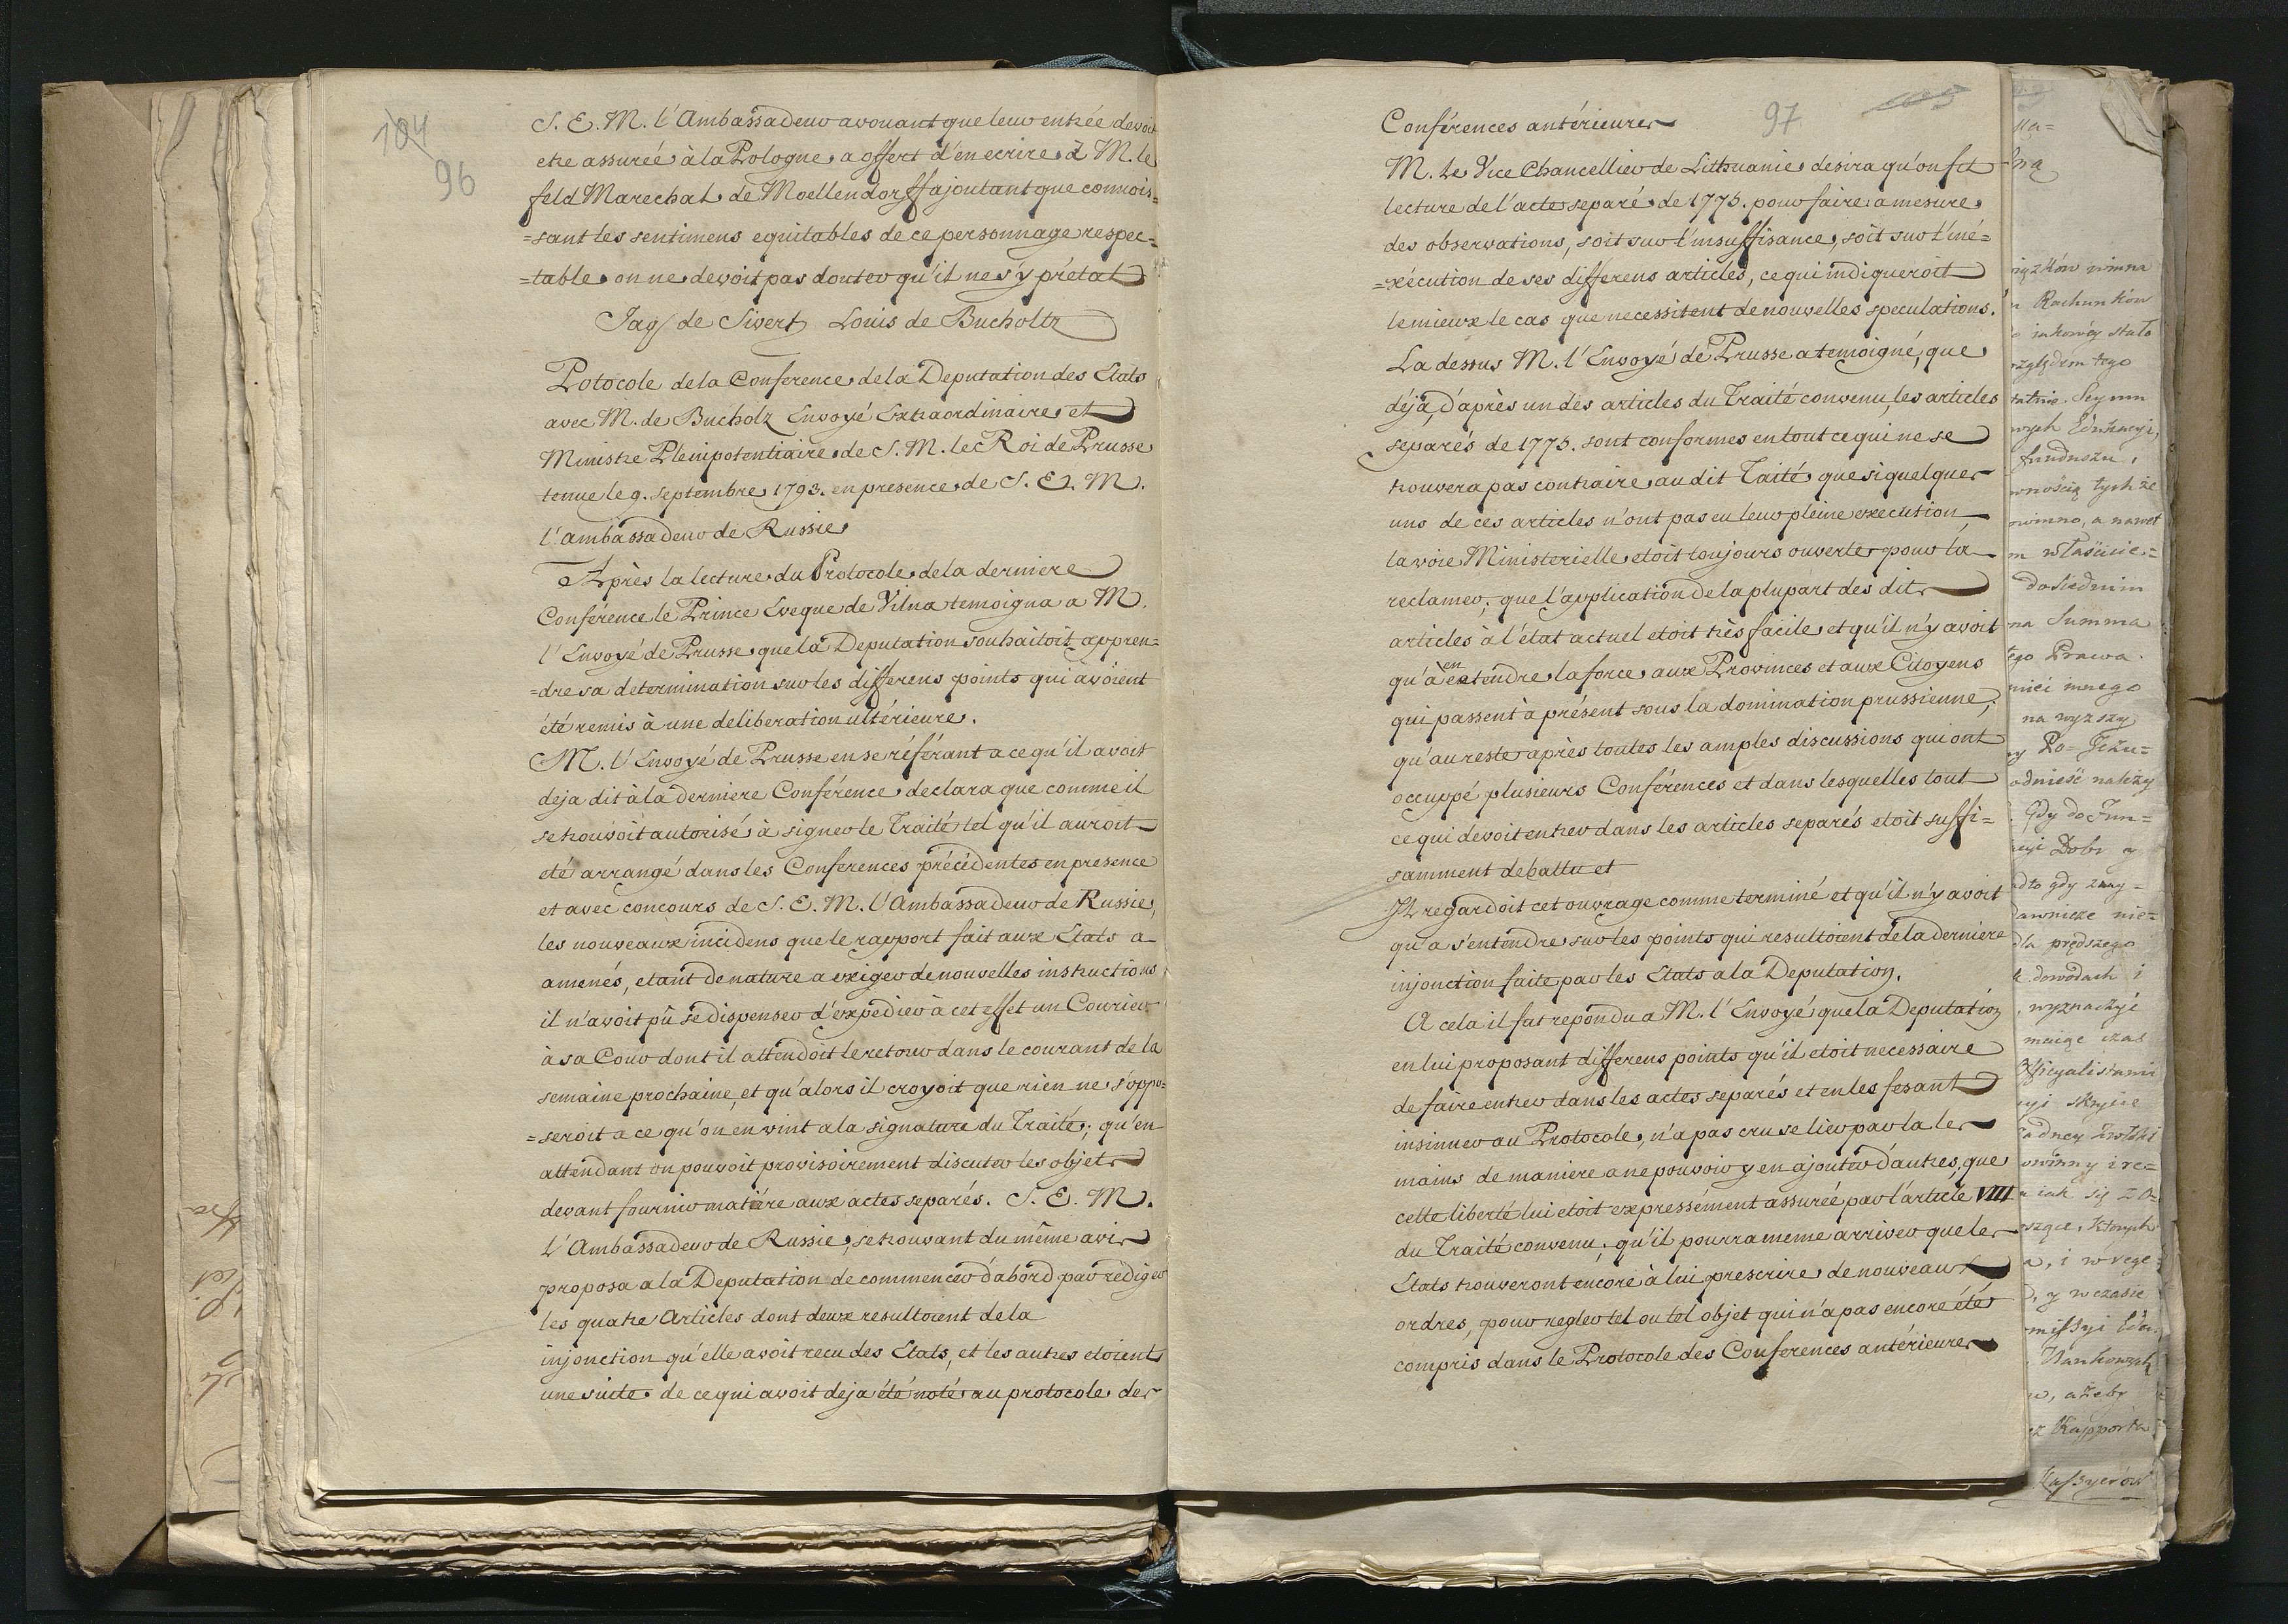 104
96
S. E. M. l'Ambassadeur avouant que leur entrée devoit
etre assurée à la Pologne a offert d'en ecrire à M. le
feld Marechal de Moellendorff ajoutant que connois=
=sant les sentimens equitables de ce personnage respec=
=table on ne devoit pas douter qu'il ne s'y prétat
Jaq/ de Sivers Louis de Bucholtz
Potocole de la Conference de la Deputation des Etats
avec M. de Bucholz Envoyé Extraordinaire et
Ministre Plénipotentiaire de S. M. le Roi de Prusse
tenue le 9. Septembre 1793. en presence de S. E. M.
l'ambassadeur de Russie
Après la lecture du Protocole de la derniere
Conférence le Prince Eveque de Vilna temoigna a M.
l'Envoyé de Prusse que la Deputation souhaitoit appren=
=dre sa determination sur les differens points qui avoient
été remis à une deliberation ultérieure.
M. l'Envoyé de Prusse en se référant a ce qu'il avoit
deja dit à la derniere Conférence declara que comme il
se trouvoit autorisé à signer le Traité tel qu'il auroit
eté arrangé dans les Conferences précédentes en presence
et avec concours de S. E. M. l'Ambassadeur de Russie,
les nouveaux incidens que le rapport fait aux Etats a
amenés, etant de nature a exiger de nouvelles instructions
il n'avoit pû se dispenser d'expédier à cet effet un Courier
à sa Cour dont il attendoit le retour dans le courant de la
semaine prochaine, et qu'alors il croyoit que rien ne s'oppo=
=seroit a ce qu'on en vint a la signature du Traité; qu'en
attendant on pouvoit provisoirement discuter les objets
devant fournir matiére aux actes separés. S. E. M.
l'Ambassadeur de Russie, se trouvant du même avis
proposa a la Deputation de commencer d'abord par rédiger
les quatre Articles dont deux resultoient de la
injonction qu'elle avoit recu des Etats, et les autres etoient
une suite de ce qui avoit deja été noté au protocole des
97
105
Conférences antérieures
M. le Vice Chancellier de Lithuanie desira qu'on fit
lecture de l'acte separé de 1775. pour faire a mesure
des observations, soit sur l'insuffisance, soit sur l'iné=
=xécution de ses differens articles, ce qui indiqueroit
le mieux le cas que necessitent de nouvelles speculations.
La dessus M. l'Envoyé de Prusse a temoigné, que
déjà, d'après un des articles du Traité convenu, les articles
separés de 1775. sont conformes en tout ce qui ne se
trouvera pas contraire au dit Taité que si quelques
uns de ces articles n'ont pas eu leur pleine execution
la voie Ministerielle etoit toujours ouverte pour la
reclamer; que l'application de la plupart des dits
articles à l'état actuel etoit très facile et qu'il n'y avoit
qu'à en etendre la force aux Provinces et aux Citoyens
qui passent à présent sous la domination prussienne,
qu'au reste après toutes les amples discussions qui ont
occuppé plusieurs Conférences et dans lesquelles tout
ce qui devoit entrer dans les articles separés etoit suffi=
samment debattu et
Il regardoit cet ouvrage comme terminé et qu'il n'y avoit
qu'a s'entendre sur les points qui resultoient de la derniere
injonction faite par les Etats a la Deputation.
A cela il fut repondu a M. l'Envoyé que la Deputation
en lui proposant differens points qu'il etoit necessaire
de faire entrer dans les actes separés et en les fesant
insinuer au Protocole, n'a pas cru se lier par la les
mains de maniere a ne pouvoir y en ajouter d'autres, que
cette liberté lui etoit expressément assurée par l'article VIII
du Traité convenu; qu'il pourra meme arriver que les
Etats trouveront encore à lui prescrire de nouveaux
ordres, pour regler tel ou tel objet qui n'a pas encore été
compris dans le Protocole des Conferences antérieures
Rachunkow
jakowéy stało
względem tego
Seym
Edukacyi,
funduszu,
tychże
a nawet
Summa
Prawa
innego
na wyższy
należy
Gdy do Fun=
Dobr y
gdy znay=
dla prędszego
dowodach i
wyznaczyć
czas
się
Których
y w czasie
ażeby
Rapporta